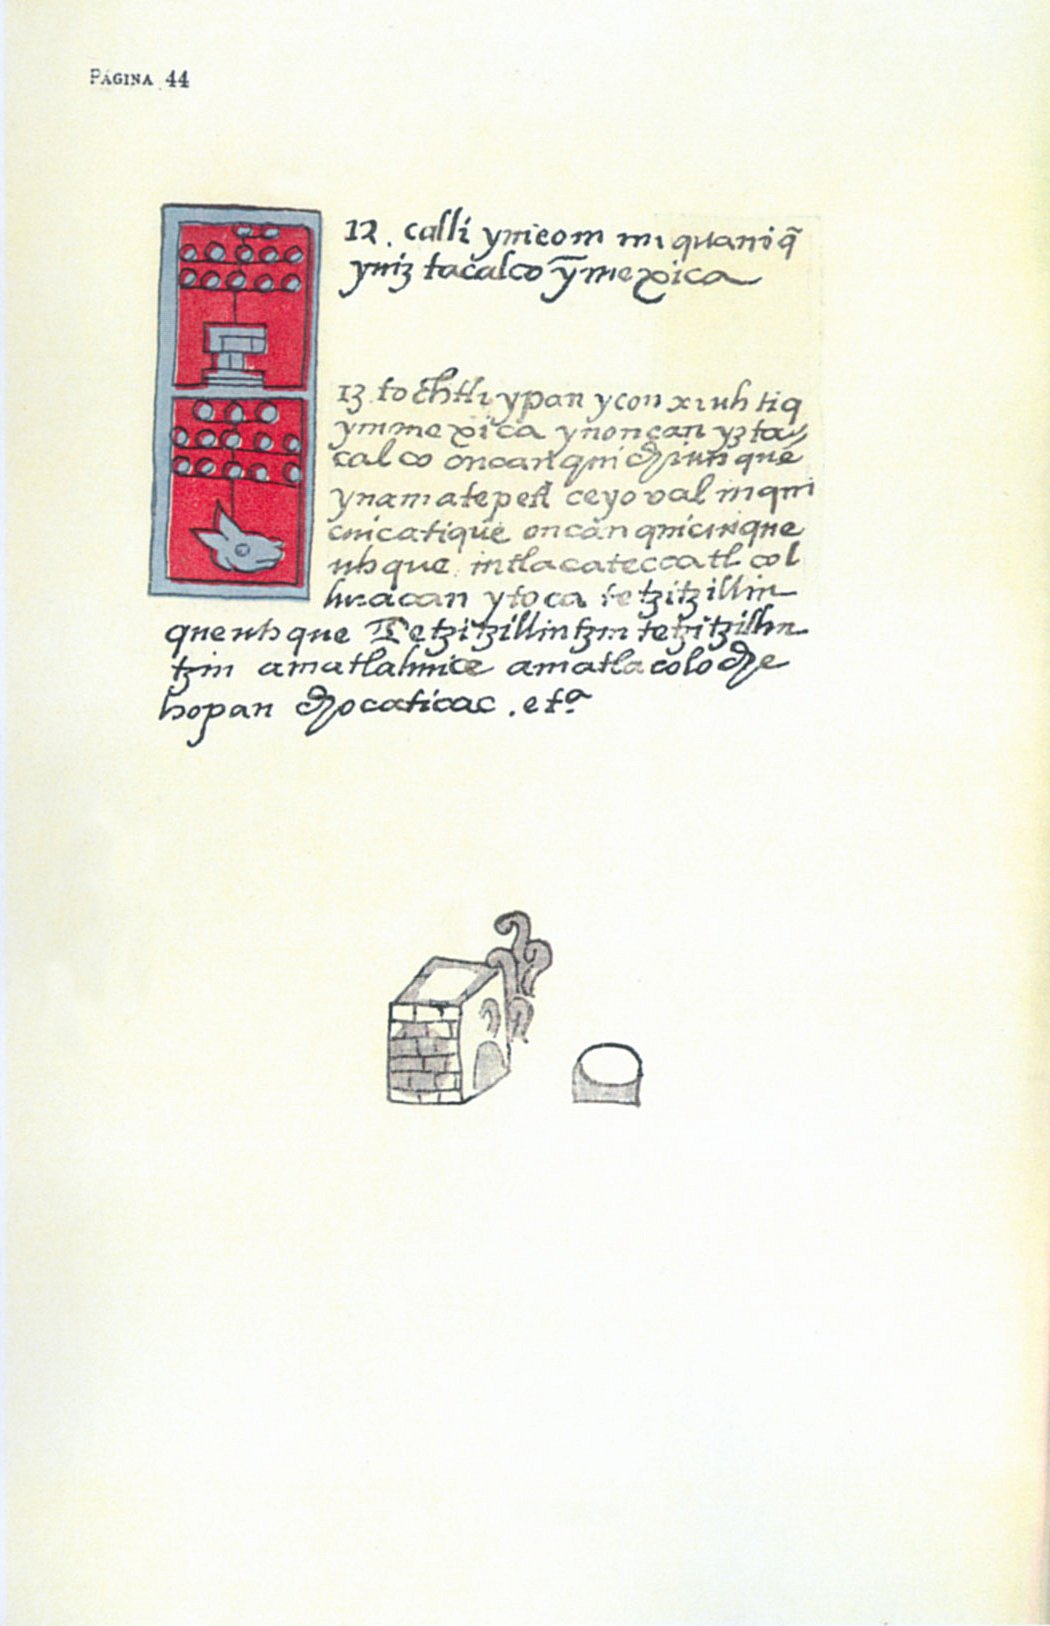 PÁGINA 44
12. calli ynicom mi quaniq̃
yniz tacalco ỹmexica
13 tochtli ypan ycon xiuh tiq
ymmexica ynoncan yzta
calco oncan qui chiuhque
ynamatepetl ceyoval inqui
cuicatique oncan quicuique
uhque intlacateccatl col
huacan ytoca tetzitzillin
queuhque Tetzitzillintzin tetzitzillin
tzin amatlahuice amatlacoloche
hopan chocaticac . etª